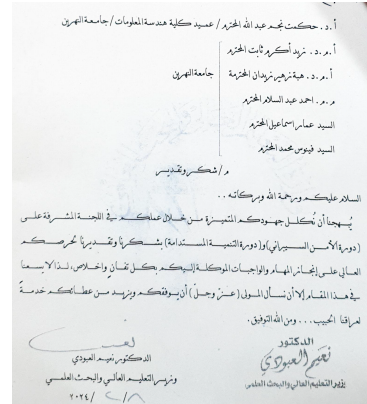 أ.د. حكمت نجم عبد الله المحترم / عميد كلية هندسة المعلومات / جامعة النهرين
أ.م.د. زيد أكرم ثابت المحترم
أ.م.د. هبة زهير زيدان المحترمة
جامعة النهرين
م.م. احمد عبد السلام المحترم
السيد عمار اسماعيل المحترم
السيد فينوس محمد المحترم
م/ شكر وتقدير
السلام عليكم ورحمة الله وبركاته ..
يُبهجنا أن نُكلل جهودكم المتميزة من خلال عملكم في اللجنة المشرفة على
(دورة الأمن السيبراني) و(دورة التنمية المستدامة) بشكرنا وتقديرنا لحرصكم
العالي على إنجاز المهام والواجبات الموكلة إليكم بكل تفانٍ واخلاص، لذا لا يسعنا
في هذا المقام إلا أن نسأل المولى (عز وجل) أن يوفقكم ويزيد من عطائكم خدمةً
لعراقنا الحبيب ... ومن الله التوفيق.
الدكتور نعيم العبودي
وزير التعليم العالي والبحث العلمي
٢٠٢٤/٢/٨
الدكتور
نعيم العبودي
وزير التعليم العالي والبحث العلمي